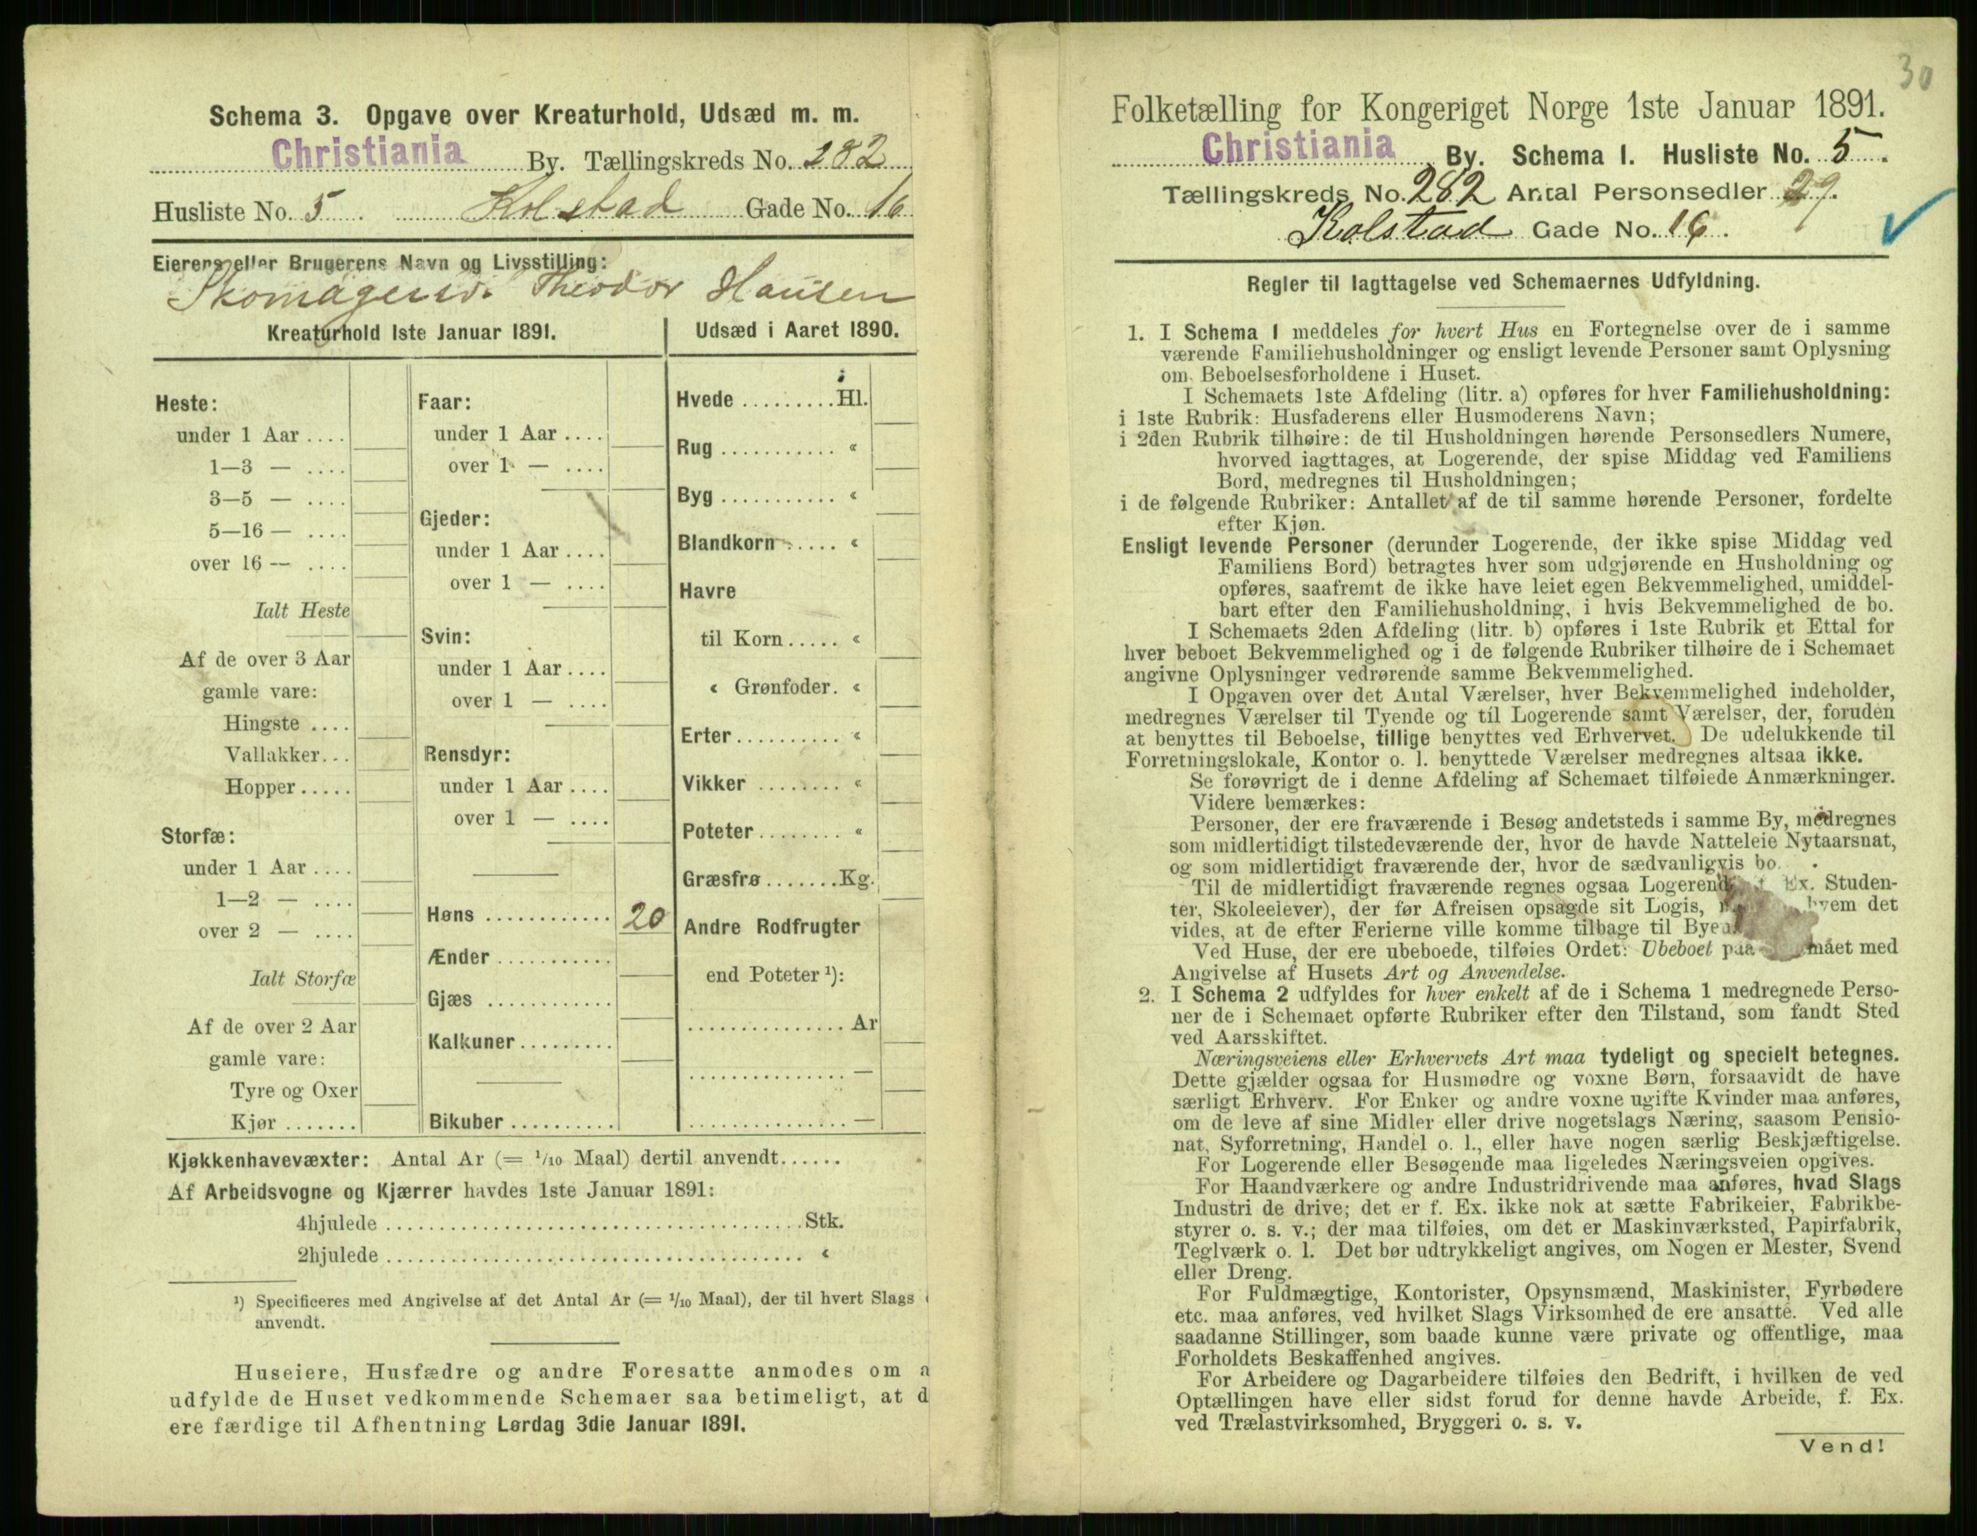 Schema 3. Opgave over Kreaturhold, Udsæd m. m.
Christiania By. Tællingskreds No. 282
Husliste No. 5. Kolstad Gade No. 16
Eierens eller Brugerens Navn og Livsstilling:
Theodor Hansen
Kreaturhold 1ste Januar 1891.
Heste:
under 1 Aar ....
1—3 — ....
3—5 — ....
5—16 — ....
over 16 — ....
Ialt Heste
Af de over 3 Aar
gamle vare:
Hingste ....
Vallakker...
Hopper.....
Storfæ:
under 1 Aar ....
1—2 — ....
over 2 — ....
Ialt Storfæ
Af de over 2 Aar
gamle vare:
Tyre og Oxer
Kjør .......
Faar:
under 1 Aar ....
over 1 — ....
Gjeder:
under 1 Aar ....
over 1 — ....
Svin:
under 1 Aar ....
over 1 — ....
Rensdyr:
under 1 Aar ....
over 1 — ....
Høns ............ 20
Ænder ...........
Gjæs ............
Kalkuner.........
Bikuber ..........
Udsæd i Aaret 1890.
Hvede .........Hl.
Rug ........... «
Byg ........... «
Blandkorn ..... «
Havre
til Korn..... «
« Grønfoder. «
Erter.......... «
Vikker ........ «
Poteter........ «
Græsfrø.......Kg.
Andre Rodfrugter
end Poteter ¹):
............... Ar
............... —
............... —
Kjøkkenhavevæxter: Antal Ar (= 1/10 Maal) dertil anvendt......
Af Arbeidsvogne og Kjærrer havdes 1ste Januar 1891:
4hjulede ........................................Stk.
2hjulede ........................................ «
¹) Specificeres med Angivelse af det Antal Ar (= 1/10 Maal), der til hvert Slags
anvendt.
Huseiere, Husfædre og andre Foresatte anmodes om a
udfylde de Huset vedkommende Schemaer saa betimeligt, at d
ere færdige til Afhentning Lørdag 3die Januar 1891.
30
Folketælling for Kongeriget Norge 1ste Januar 1891.
Christiania By. Schema 1. Husliste No. 5.
Tællingskreds No. 282 Antal Personsedler 29.
Kolstad Gade No. 16.
Regler til Iagttagelse ved Schemaernes Udfyldning.
1. I Schema 1 meddeles for hvert Hus en Fortegnelse over de i samme
værende Familiehusholdninger og ensligt levende Personer samt Oplysning
om Beboelsesforholdene i Huset.
I Schemaets 1ste Afdeling (litr. a) opføres for hver Familiehusholdning:
i 1ste Rubrik: Husfaderens eller Husmoderens Navn;
i 2den Rubrik tilhøire: de til Husholdningen hørende Personsedlers Numere,
hvorved iagttages, at Logerende, der spise Middag ved Familiens
Bord, medregnes til Husholdningen;
i de følgende Rubriker: Antallet af de til samme hørende Personer, fordelte
efter Kjøn.
Ensligt levende Personer (derunder Logerende, der ikke spise Middag ved
Familiens Bord) betragtes hver som udgjørende en Husholdning og
opføres, saafremt de ikke have leiet egen Bekvemmelighed, umiddel-
bart efter den Familiehusholdning, i hvis Bekvemmelighed de bo.
I Schemaets 2den Afdeling (litr. b) opføres i 1ste Rubrik et Ettal for
hver beboet Bekvemmelighed og i de følgende Rubriker tilhøire de i Schemaet
angivne Oplysninger vedrørende samme Bekvemmelighed.
I Opgaven over det Antal Værelser, hver Bekvemmelighed indeholder,
medregnes Værelser til Tyende og til Logerende samt Værelser, der, foruden
at benyttes til Beboelse, tillige benyttes ved Erhvervet. De udelukkende til
Forretningslokale, Kontor o. l. benyttede Værelser medregnes altsaa ikke.
Se forøvrigt de i denne Afdeling af Schemaet tilføiede Anmærkninger.
Videre bemærkes:
Personer, der ere fraværende i Besøg andetsteds i samme By, medregnes
som midlertidigt tilstedeværende der, hvor de havde Natteleie Nytaarsnat,
og som midlertidigt fraværende der, hvor de sædvanligvis bo.
Til de midlertidigt fraværende regnes ogsaa Logerend Ex. Studen-
ter, Skoleelever), der før Afreisen opsagde sit Logis, hvem det
vides, at de efter Ferierne ville komme tilbage til Bye
Ved Huse, der ere ubeboede, tilføies Ordet: Ubeboet paa maet med
Angivelse af Husets Art og Anvendelse.
2. I Schema 2 udfyldes for hver enkelt af de i Schema 1 medregnede Perso-
ner de i Schemaet opførte Rubriker efter den Tilstand, som fandt Sted
ved Aarsskiftet.
Næringsveiens eller Erhvervets Art maa tydeligt og specielt betegnes.
Dette gjælder ogsaa for Husmødre og voxne Børn, forsaavidt de have
særligt Erhverv. For Enker og andre voxne ugifte Kvinder maa anføres,
om de leve af sine Midler eller drive nogetslags Næring, saasom Pensio-
nat, Syforretning, Handel o. l., eller have nogen særlig Beskjæftigelse.
For Logerende eller Besøgende maa ligeledes Næringsveien opgives.
For Haandværkere og andre Industridrivende maa anføres, hvad Slags
Industri de drive; det er f. Ex. ikke nok at sætte Fabrikeier, Fabrikbe-
styrer o. s. v.; der maa tilføies, om det er Maskinværksted, Papirfabrik,
Teglværk o. l. Det bør udtrykkeligt angives, om Nogen er Mester, Svend
eller Dreng.
For Fuldmægtige, Kontorister, Opsynsmænd, Maskinister, Fyrbødere
etc. maa anføres, ved hvilket Slags Virksomhed de ere ansatte. Ved alle
saadanne Stillinger, som baade kunne være private og offentlige, maa
Forholdets Beskaffenhed angives.
For Arbeidere og Dagarbeidere tilføies den Bedrift, i hvilken de ved
Optællingen have eller sidst forud for denne havde Arbeide, f. Ex.
ved Trælastvirksomhed, Bryggeri o. s. v.
Vend!